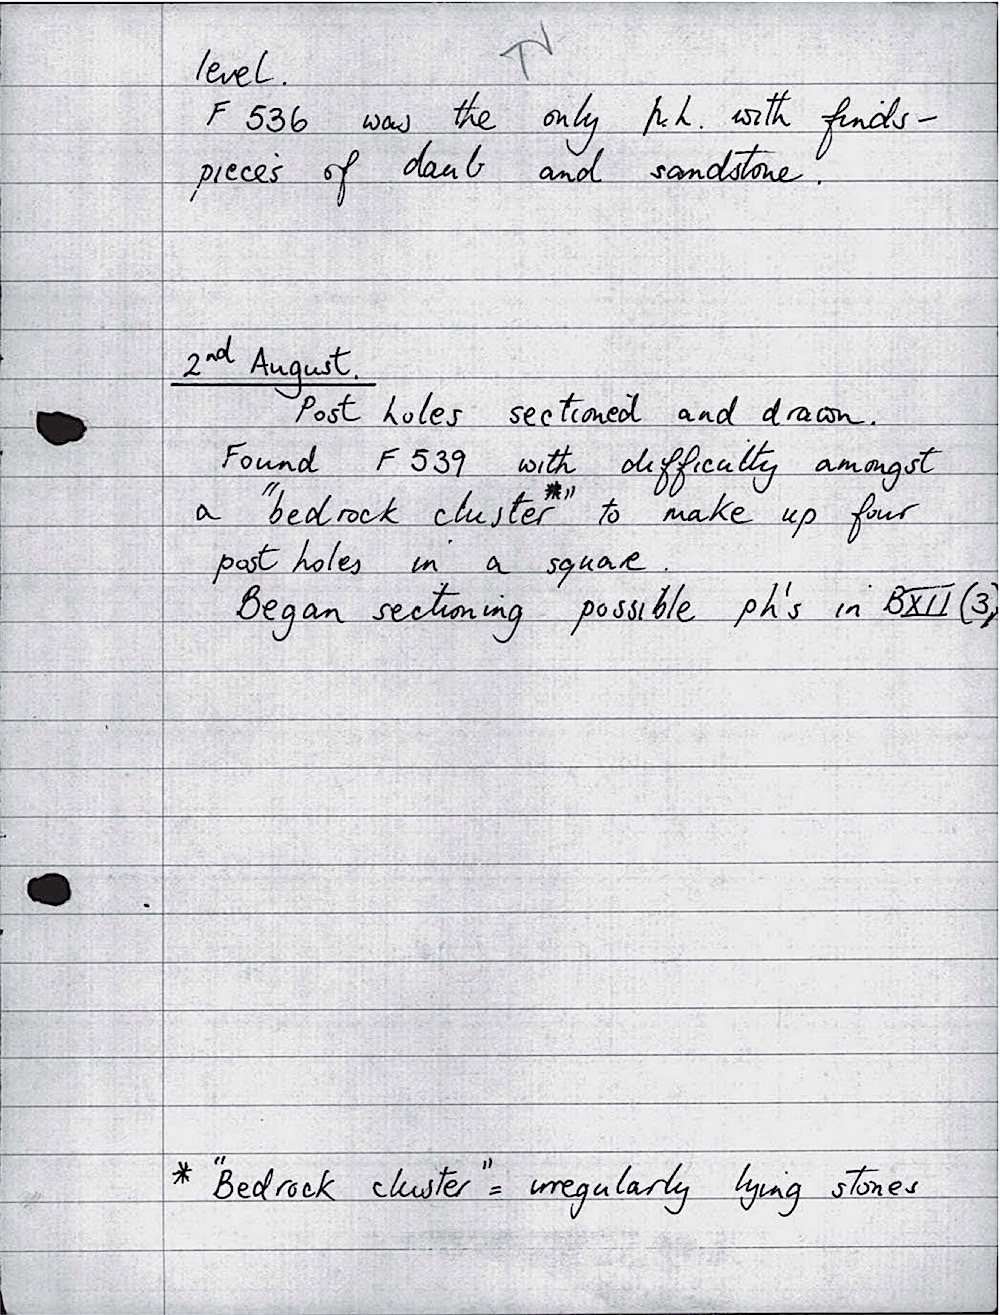 level.
F 536 was the only p.h. with finds -
pieces of daub and sandstone.
2nd August.
Post holes sectioned and drawn.
Found F 539 with difficulty amongst
a "bedrock cluster*" to make up four
post holes in a square.
Began sectioning possible ph's in BXII (3)
* "Bedrock cluster" = irregularly lying stones